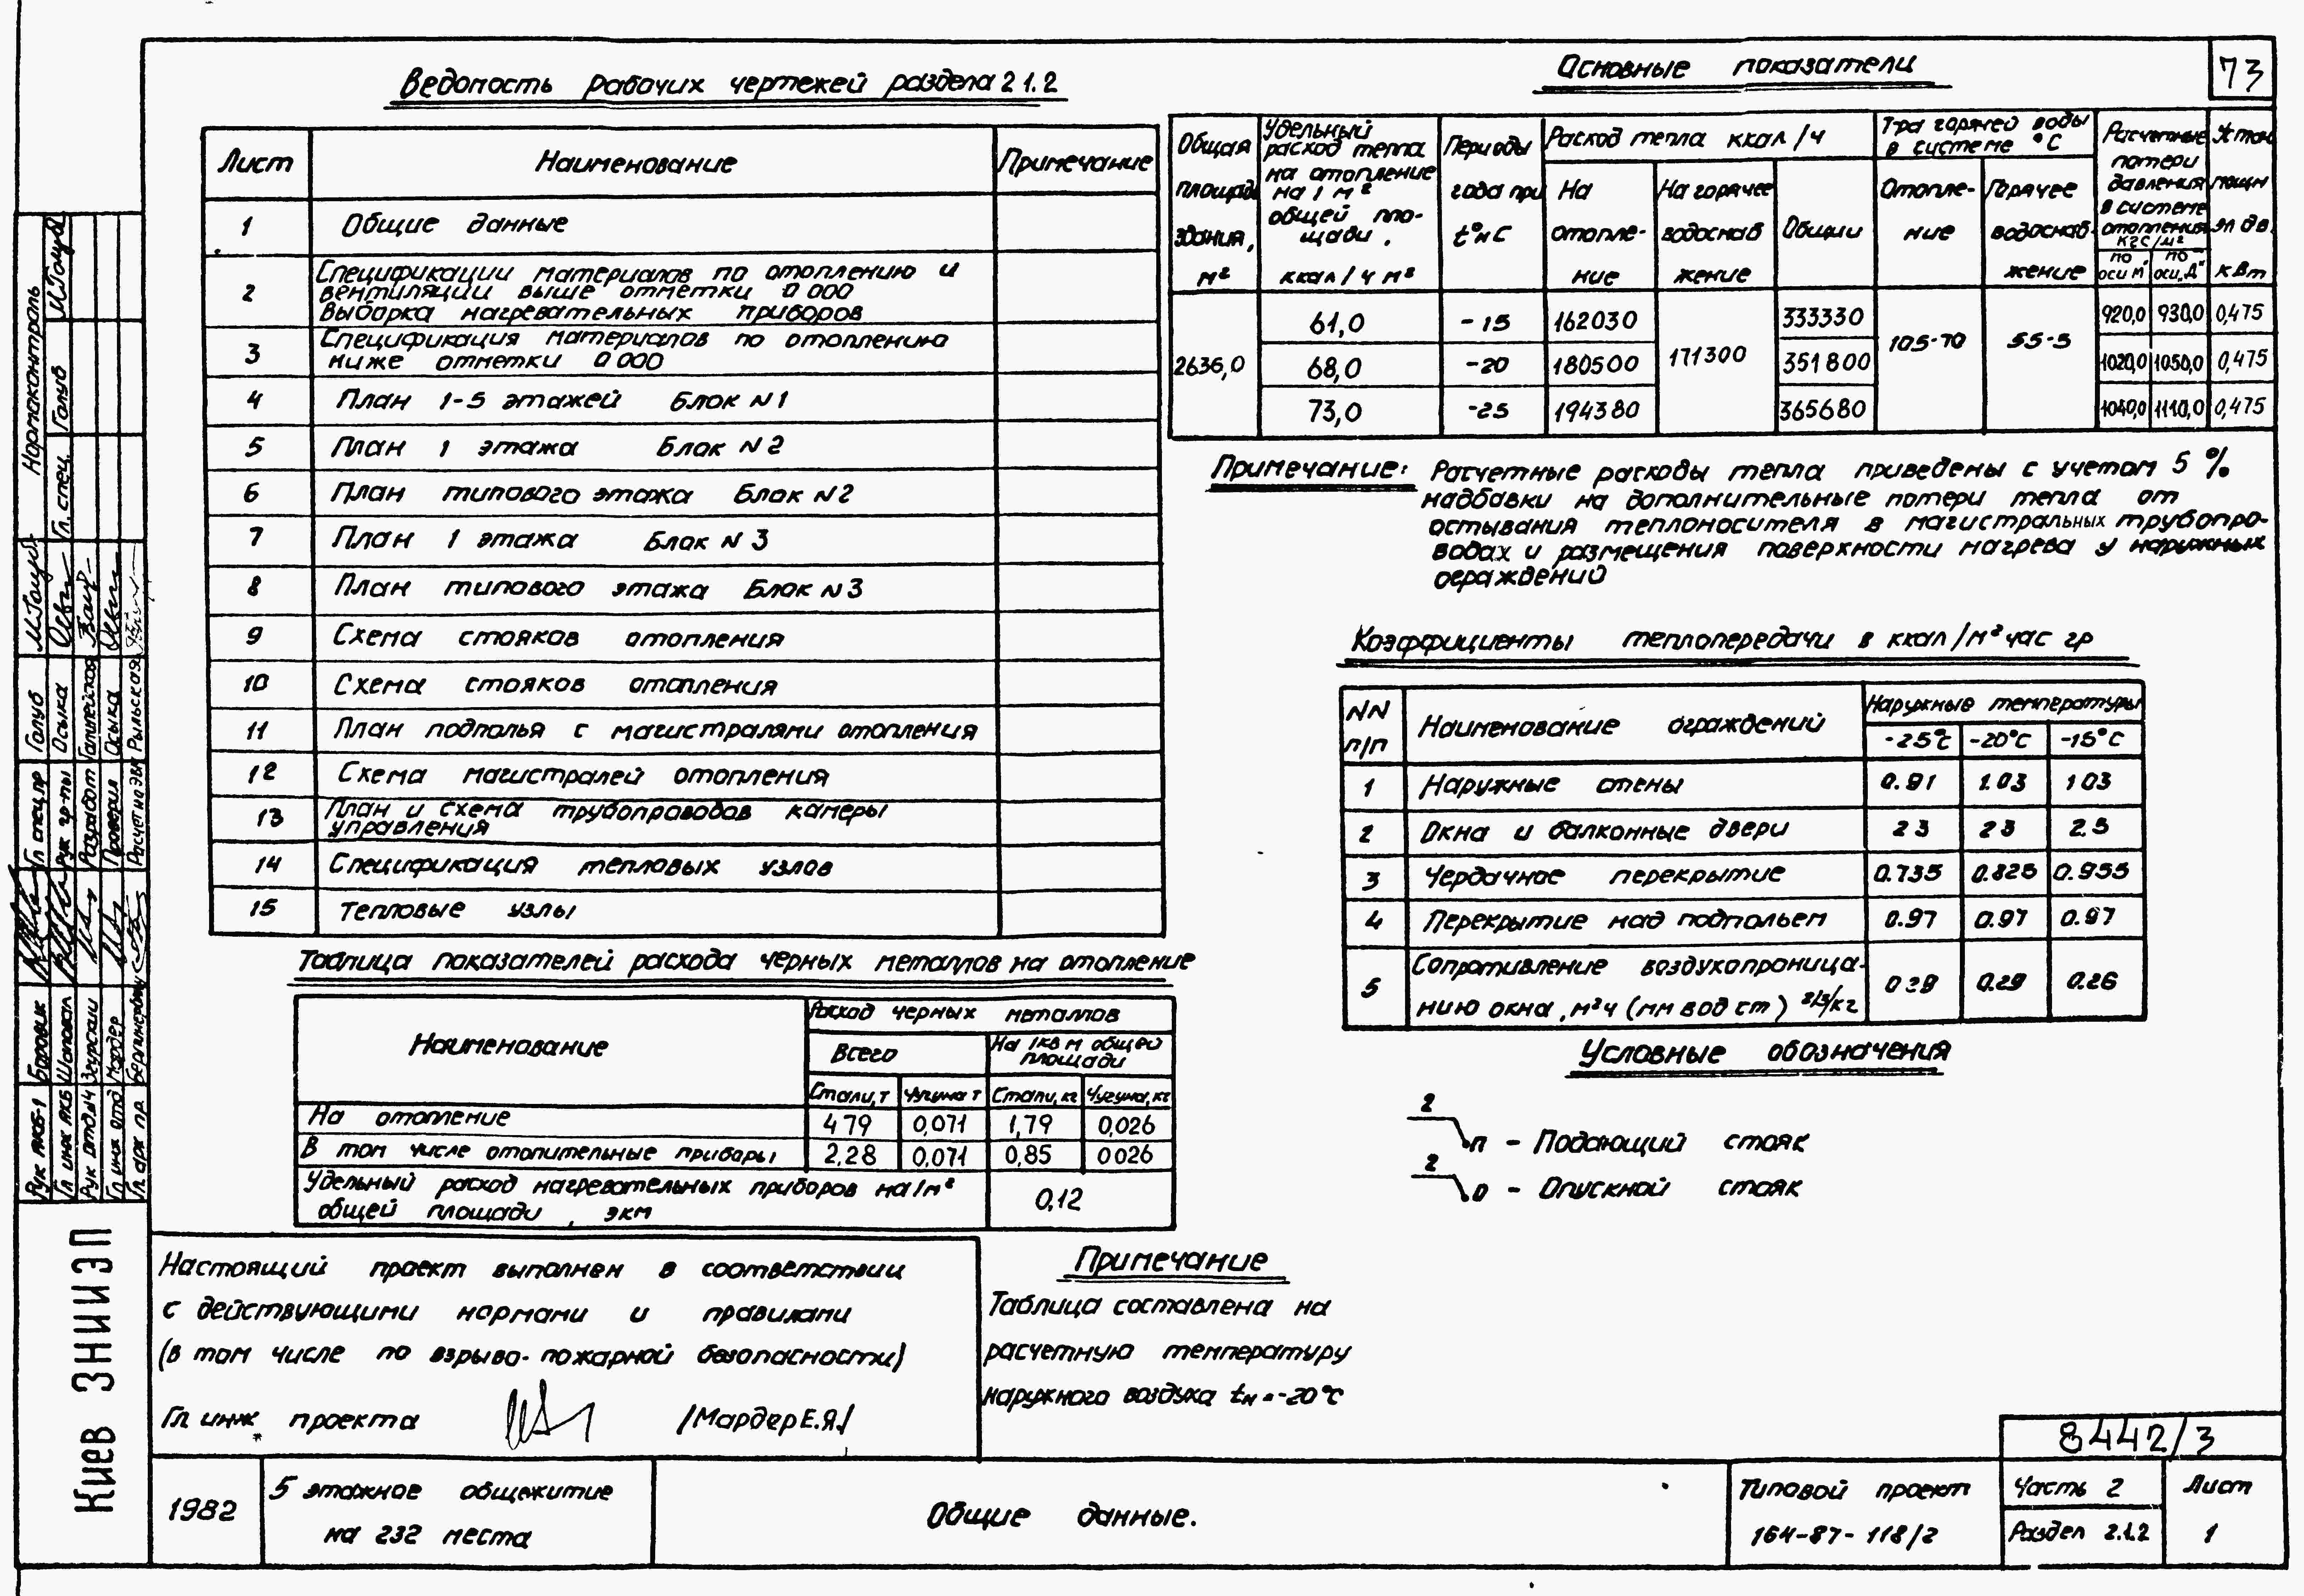 73
Ведомость рабочих чертежей раздела 2 1.2
Лист Наименование Примечание
1 Общие данные
2 Спецификации материалов по отоплению и
вентиляции выше отметки 0 000
Выборка нагревательных приборов
3 Спецификация материалов по отоплению
ниже отметки 0 000
4 План 1-5 этажей Блок N1
5 План 1 этажа Блок N2
6 План типового этажа Блок N2
7 План 1 этажа Блок N 3
8 План типового этажа Блок N3
9 Схема стояков отопления
10 Схема стояков отопления
11 План подполья с магистралями отопления
12 Схема магистралей отопления
13 План и схема трубопроводов камеры
управления
14 Спецификация тепловых узлов
15 Тепловые узлы
Таблица показателей расхода черных металлов на отопление
Наименование
Расход черных металлов
Всего
На 1кв м общей
площади
Стали, т Чугуна т Стали, кг Чугуна, кг
На отопление 4 79 0,071 1,79 0,026
В том числе отопительные приборы 2,28 0,071 0,85 0 026
Удельный расход нагревательных приборов на 1м²
общей площади, экм 0,12
Основные показатели
Общая площадь здания, м²
Удельный расход тепла на отопление на 1 м² общей площади, ккал/ч м²
Периоды года при t°н С
Расход тепла ккал/ч
На отопление
На горячее водоснабжение
Общий
Т-ра горячей воды в системе °С
Отопление
Горячее водоснабжение
Расчетные потери давления в системе отопления кгс/м²
по оси „М"
по оси „Д"
Устан мощн эл дв. кВт
2636,0
61,0 -15 162030 333330 920,0 930,0 0,475
68,0 -20 180500 171300 351800 105-70 55-5 1020,0 1050,0 0,475
73,0 -25 194380 365680 1040,0 1110,0 0,475
Примечание: Расчетные расходы тепла приведены с учетом 5 %
надбавки на дополнительные потери тепла от
остывания теплоносителя в магистральных трубопро-
водах и размещения поверхности нагрева у наружных
ограждений
Коэффициенты теплопередачи в ккал/м² час гр
NN
п/п
Наименование ограждений
Наружные температуры
-25°С -20°С -15°С
1 Наружные стены 0.91 1.03 1 03
2 Окна и балконные двери 2 3 2 3 2.3
3 Чердачное перекрытие 0.735 0.825 0.955
4 Перекрытие над подпольем 0.97 0.97 0.97
5 Сопротивление воздухопроница-
нию окна, м²ч (мм вод ст) 2/3/кг 0 29 0.29 0.26
Условные обозначения
2
п - Подающий стояк
2
о - Опускной стояк
Настоящий проект выполнен в соответствии
с действующими нормами и правилами
(в том числе по взрыво-пожарной безопасности)
Гл инж проекта /Мардер Е.Я./
Примечание
Таблица составлена на
расчетную температуру
наружного воздуха tн = -20°С
8442/3
1982
5 этажное общежитие
на 232 места
Общие данные.
Типовой проект
164-87-118/2
Часть 2
Раздел 2.1.2
Лист
1
Киев ЗНИИЭП
Нормоконтроль
Гл. спец. Голуб
Гл спец пр Голуб
Рук гр-пы Осыка
Разработ
Проверил Осыка
Расчет на ЭВМ Рыльская
Рук АКБ-1 Боровик
Гл инж АКБ Шаповал
Рук отд Згурский
Гл инж отд Мардер
Гл арх пр.